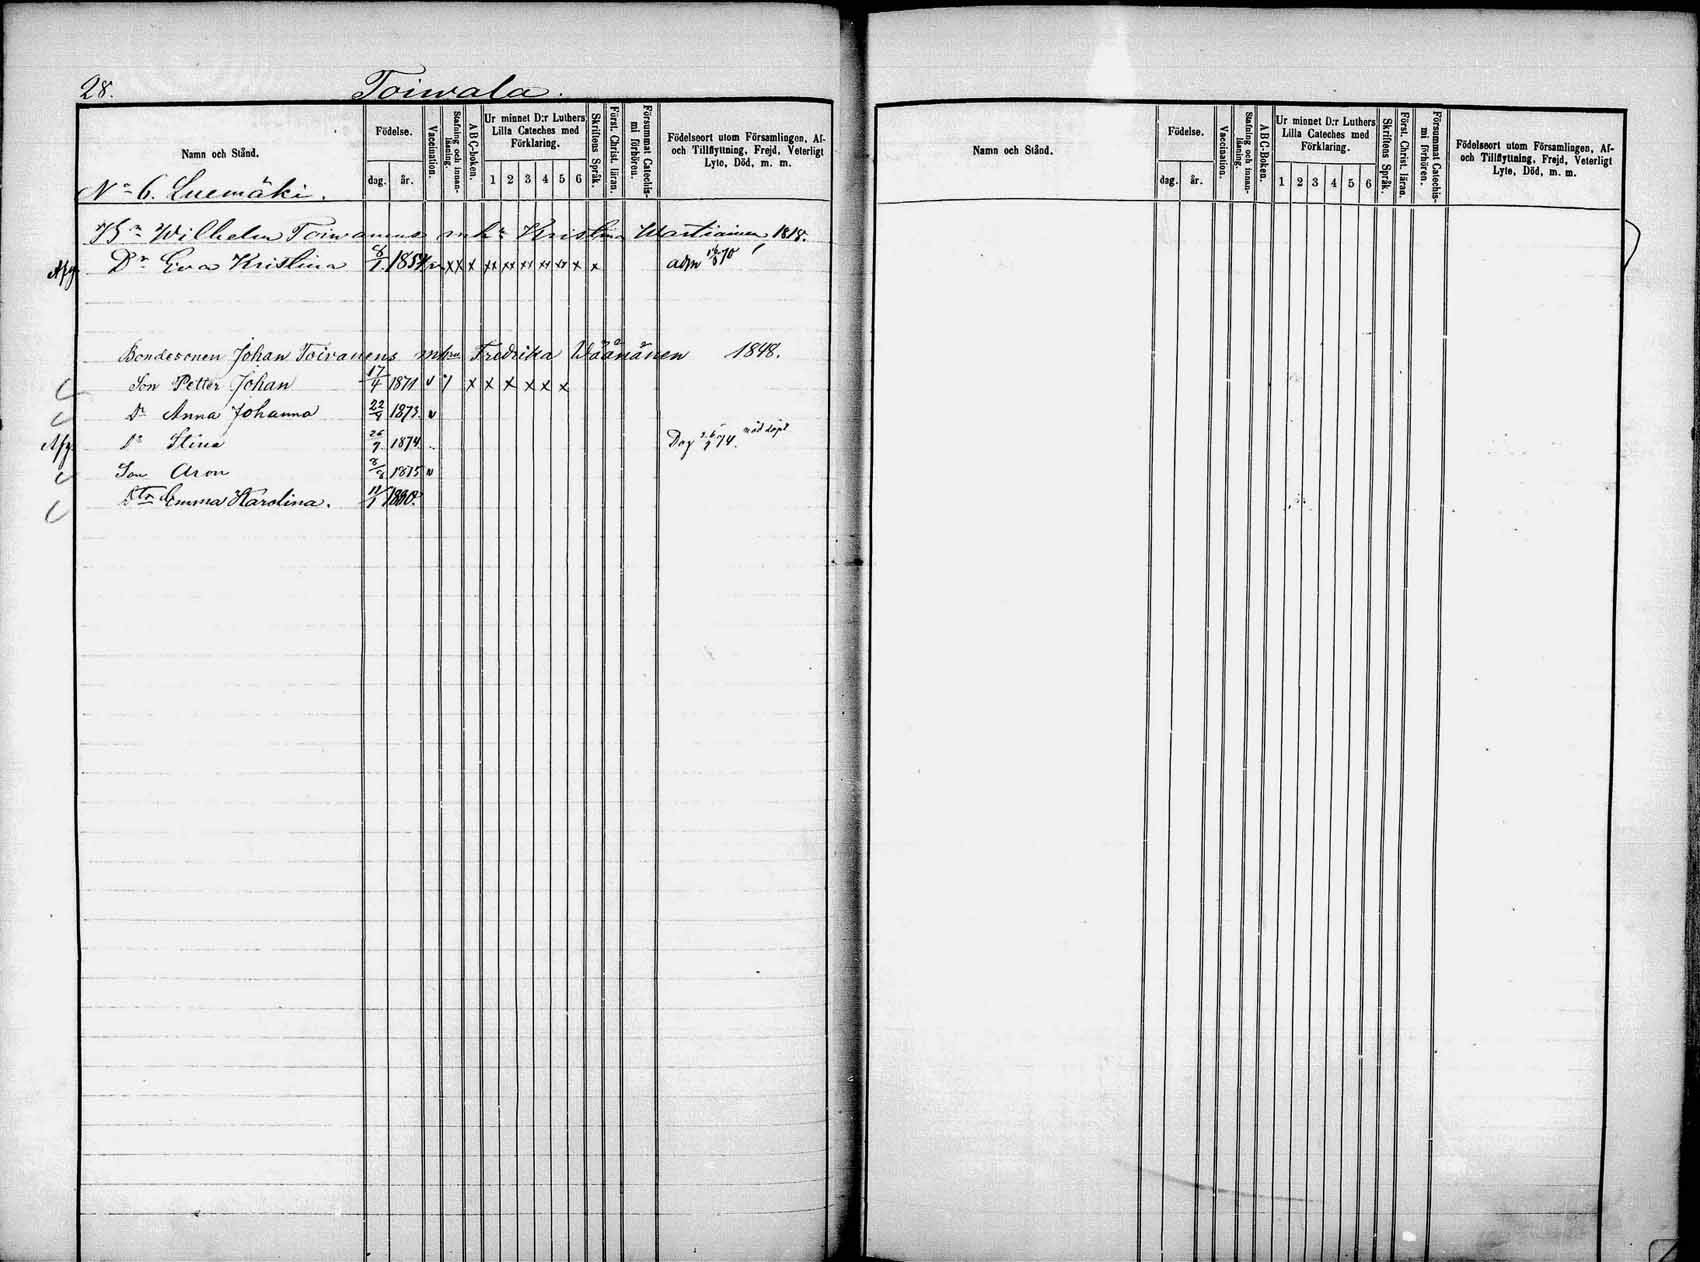 28. Toiwala.
Namn och Stånd.
Födelse.
dag. år.
Vaccination.
Stafning och innanläsning.
ABC-boken.
Ur minnet D:r Luthers
Lilla Cateches med
Förklaring.
1 2 3 4 5 6
Skriftens Språk.
Först. Christ. läran.
Försummat Catechismi förhören.
Födelseort utom Församlingen, Af-
och Tillflyttning, Frejd, Veterligt
Lyte, Död, m. m.
No 6. Luemäki.
Bn Wilhelm Toiwanens mhu Kristina Wartiainen 1818.
Afg Dr Eva Kristina 1854 v xx x xx xx xx xx xx x x adm 70
Bondesonen Johan Toivanens mhu Fredrika Wäänänen 1848.
Son Petter Johan 17/4 1871 v x x x x x x
Dr Anna Johanna 22/4 1873. v
Afg Dr Stina 26/7 1874 Dog 74. nöddöpt
Son Aron 1875 v
Dtr Emma Karolina. 11/1 1880.
Namn och Stånd.
Födelse.
dag. år.
Vaccination.
Stafning och innanläsning.
ABC-Boken.
Ur minnet D:r Luthers
Lilla Cateches med
Förklaring.
1 2 3 4 5 6
Skriftens Språk.
Först. Christ. läran.
Försummat Catechismi förhören.
Födelseort utom Församlingen, Af-
och Tillflyttning, Frejd, Veterligt
Lyte, Död, m. m.